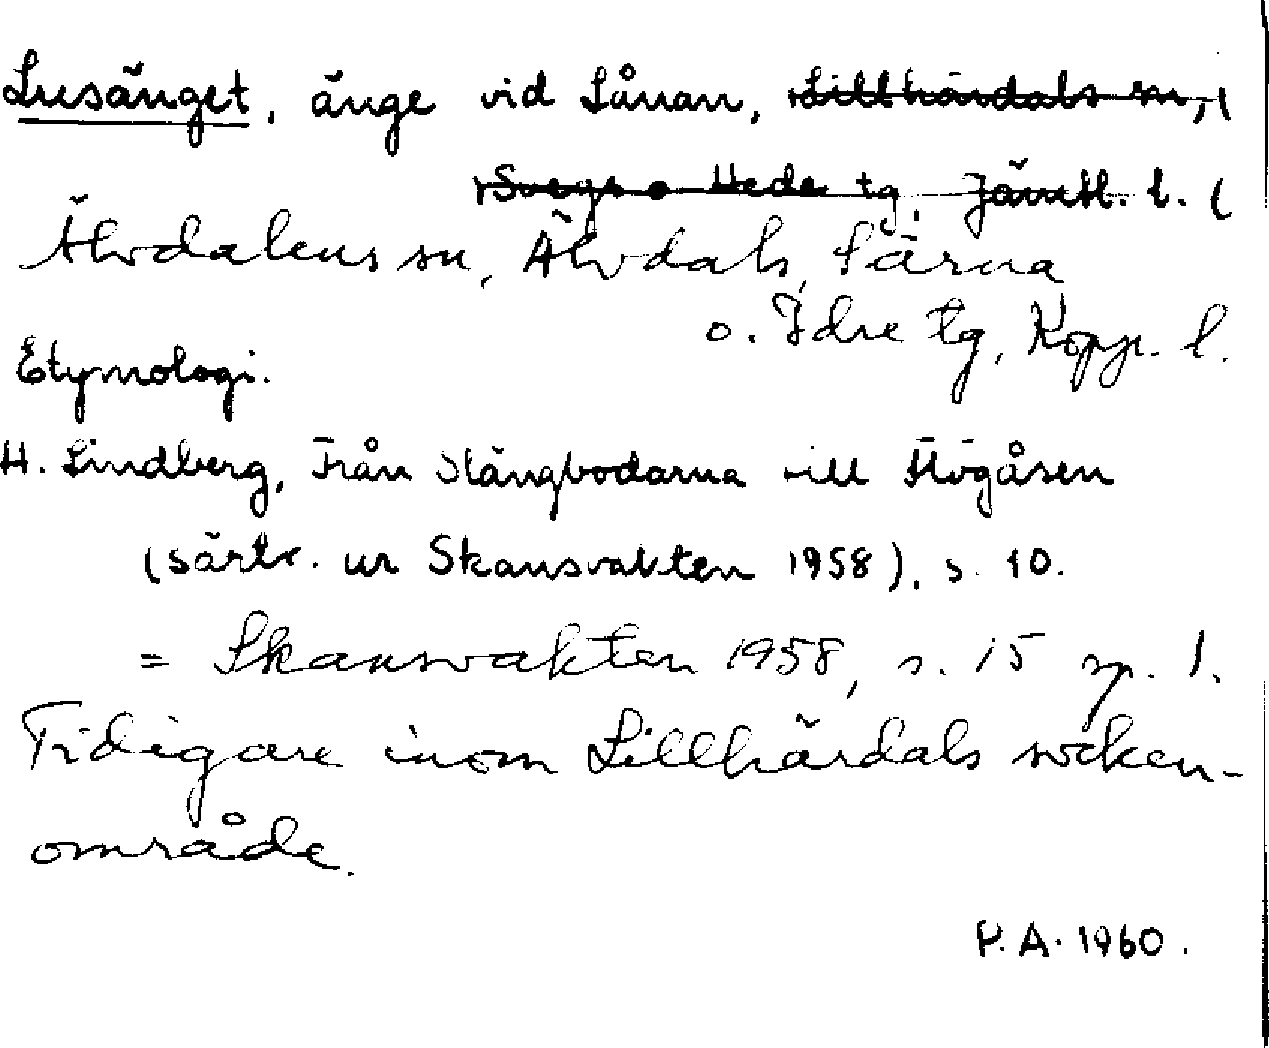 Lusänget, änge vid Lånan, Lillhärdals sn,
Svegs o Hede tg, Jämtl. l.
Älvdalens sn, Älvdals, Särna
o. Idre tg, Kopp. l.
Etymologi.
H. Lindberg, Från Stängbodarna till Högåsen
(särtr. ur Skansvakten 1958), s. 10.
= Skansvakten 1958, s. 15 sp. 1.
Tidigare inom Lillhärdals socken-
område.
P.A. 1960.